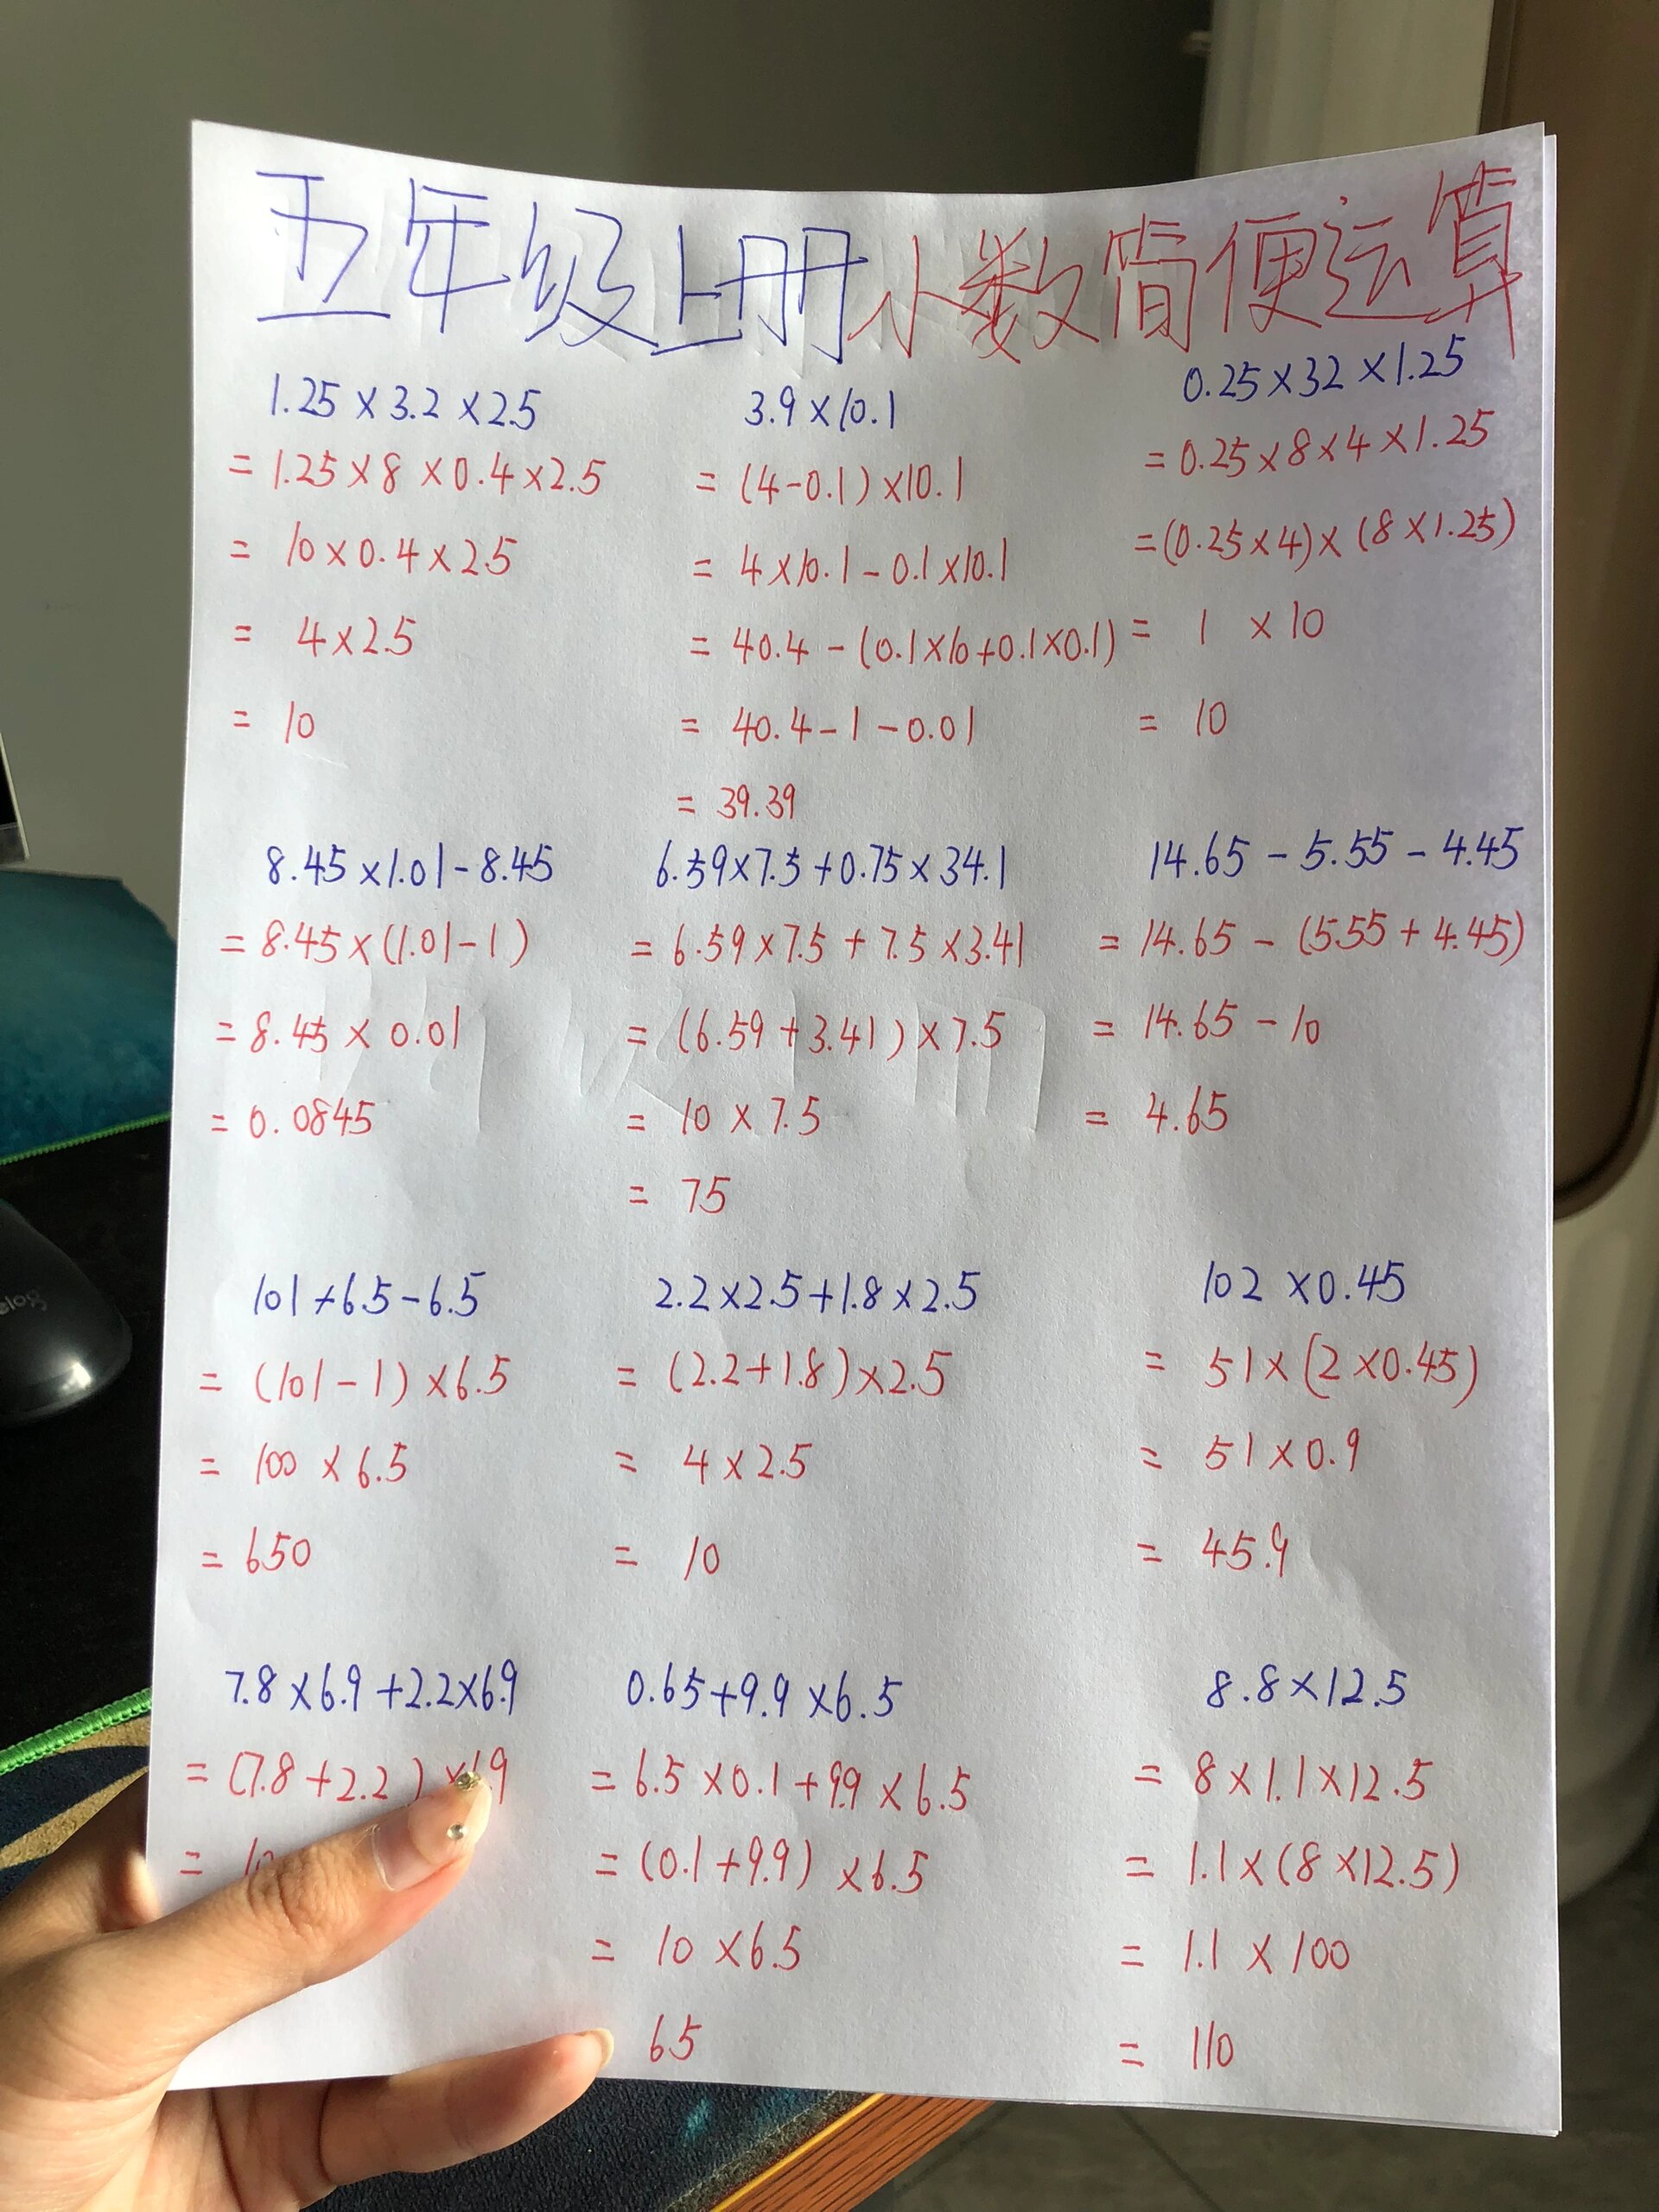 五年级上册小数简便运算
1.25×3.2×2.5
=1.25×8×0.4×2.5
=10×0.4×2.5
=4×2.5
=10
3.9×10.1
=(4-0.1)×10.1
=4×10.1-0.1×10.1
=40.4-(0.1×10+0.1×0.1)
=40.4-1-0.01
=39.39
0.25×32×1.25
=0.25×8×4×1.25
=(0.25×4)×(8×1.25)
=1×10
=10
8.45×1.01-8.45
=8.45×(1.01-1)
=8.45×0.01
=0.0845
6.59×7.5+0.75×34.1
=6.59×7.5+7.5×3.41
=(6.59+3.41)×7.5
=10×7.5
=75
14.65-5.55-4.45
=14.65-(5.55+4.45)
=14.65-10
=4.65
101×6.5-6.5
=(101-1)×6.5
=100×6.5
=650
2.2×2.5+1.8×2.5
=(2.2+1.8)×2.5
=4×2.5
=10
102×0.45
=51×(2×0.45)
=51×0.9
=45.9
7.8×6.9+2.2×6.9
=(7.8+2.2)×
=10
0.65+9.9×6.5
=6.5×0.1+9.9×6.5
=(0.1+9.9)×6.5
=10×6.5
65
8.8×12.5
=8×1.1×12.5
=1.1×(8×12.5)
=1.1×100
=110